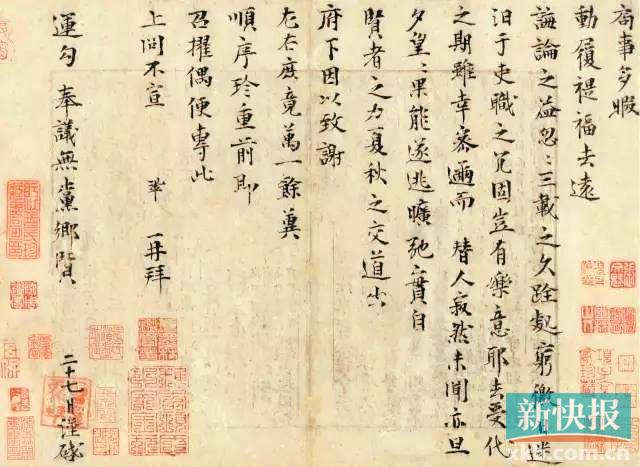 局事多暇
動履禔福去遠
誨論之益忽〻三載之久跧處窮徼日迷
汩于吏職之冗固豈有樂意耶去受代
之期雖幸密邇而 替人寂然未聞亦旦
夕望〻果能遂逃曠弛實自
賢者之力夏秋之交道出
府下因以致謝
左右庶竟萬一餘冀
順序珍重前即
召擢偶便專此
上問不宣 鞏 再拜
運勾 奉議無黨鄉賢 二十七日謹啓
新快报
xkb.com.cn